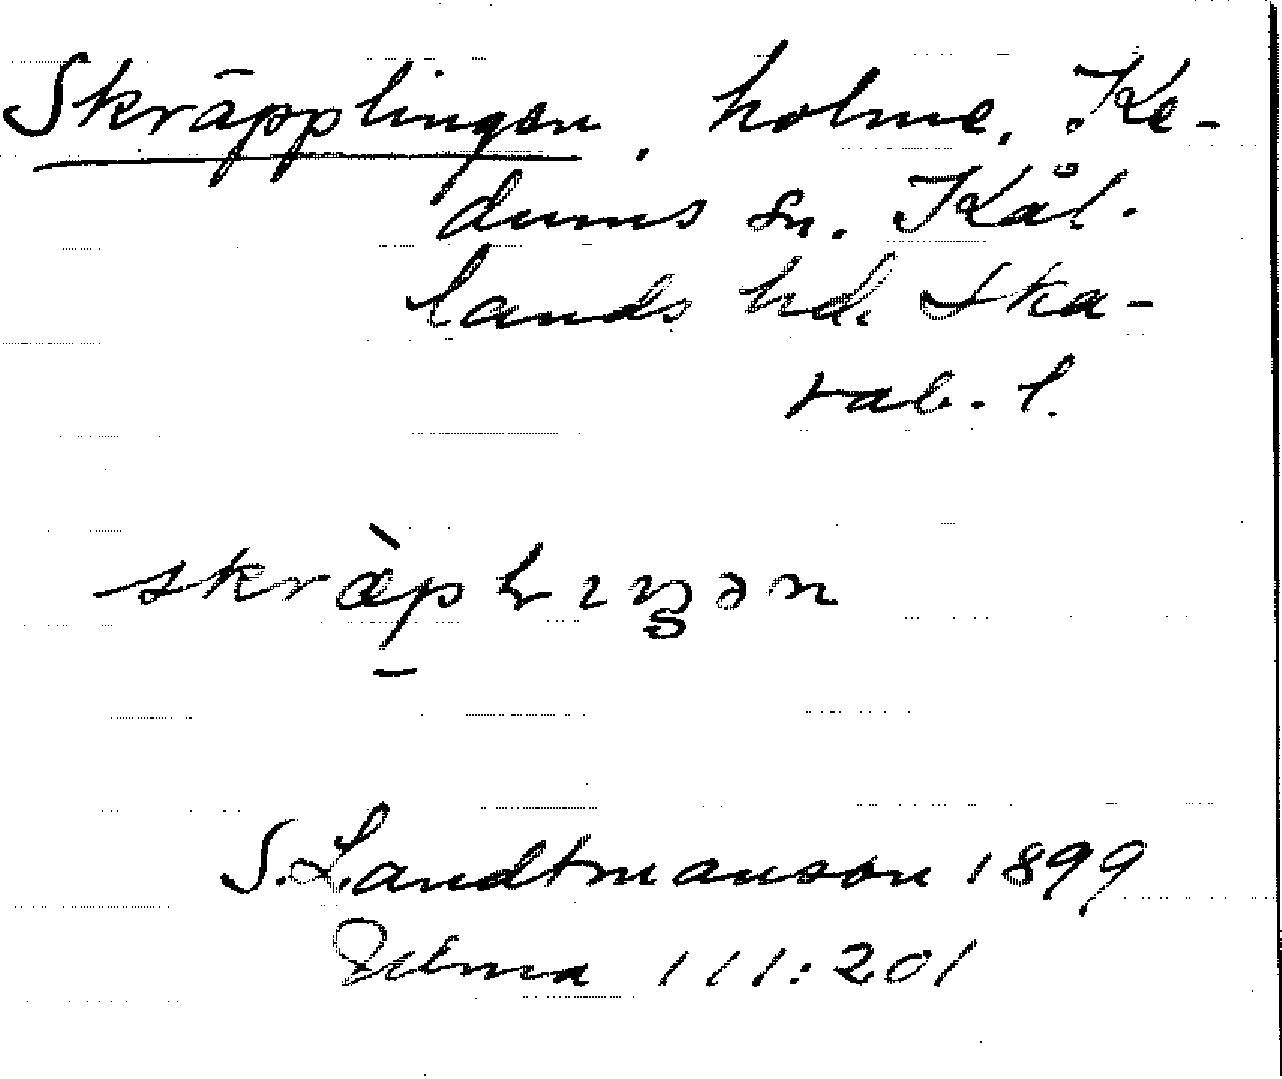 Skräpplingen, holme, Ke-
dums sn. Kål-
lands hd. Ska-
rab. l.
skræ̀plıŋən
S. Landtmanson 1899
111:201